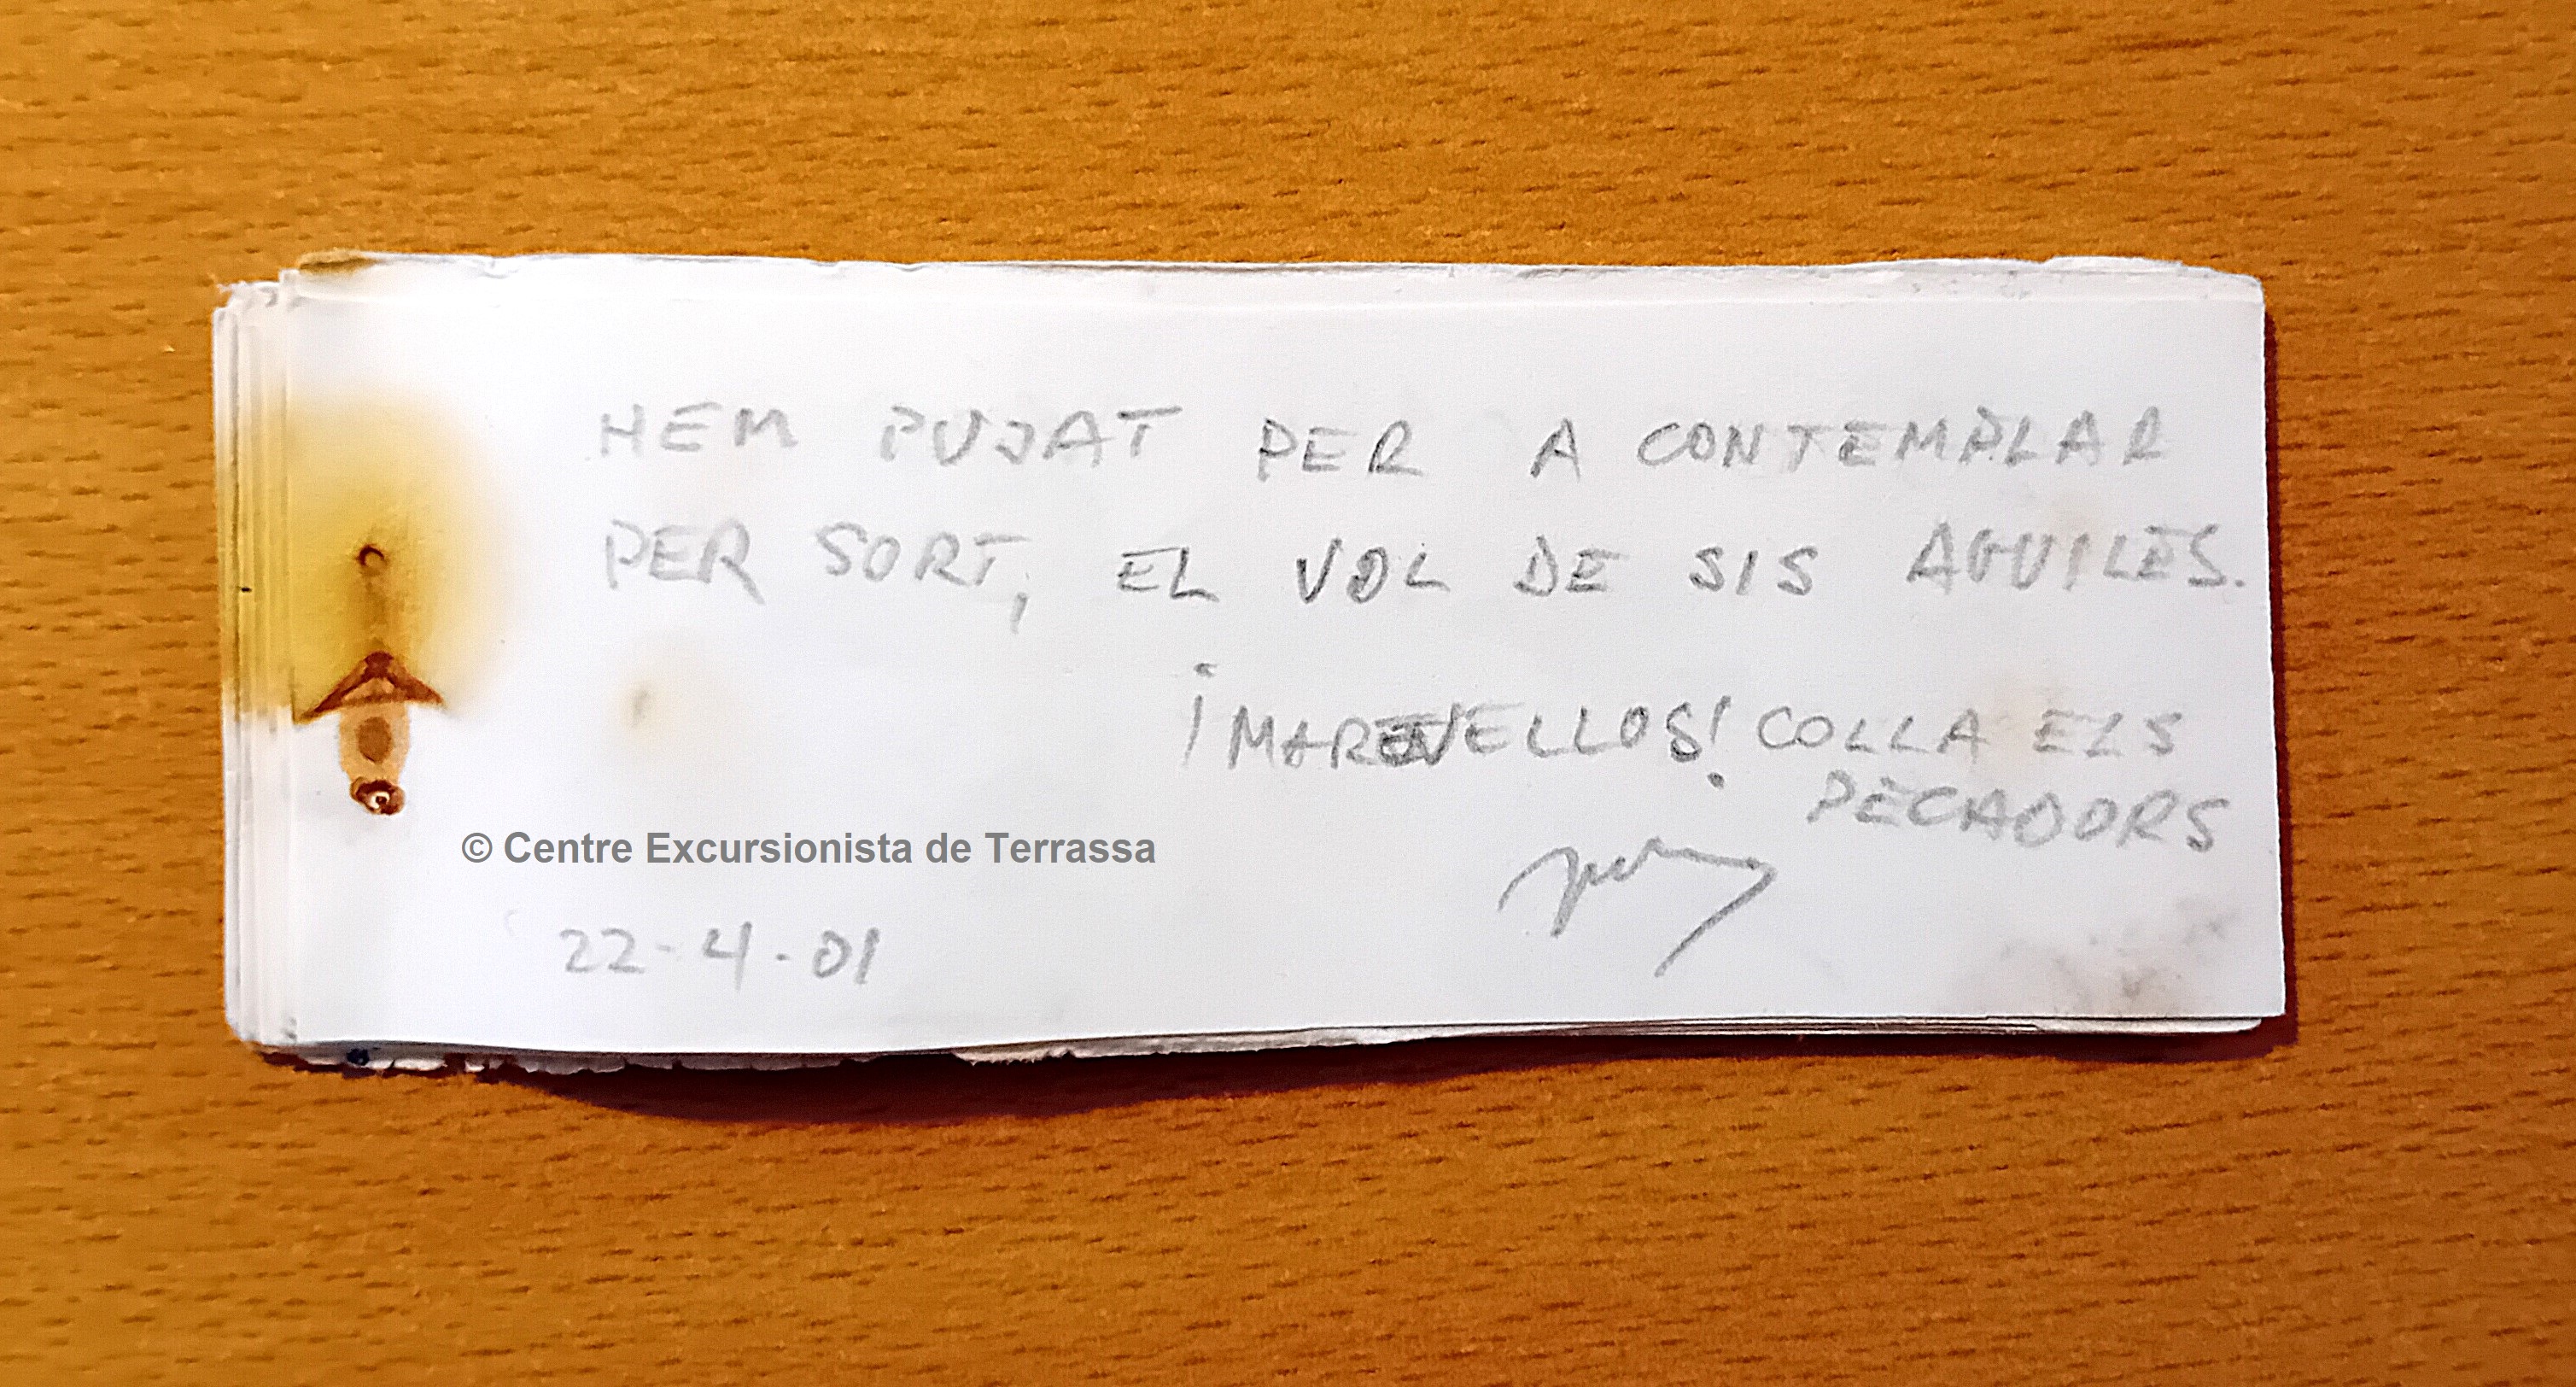 HEM PUJAT PER A CONTEMPLAR
PER SORT, EL VOL DE SIS AGUILES.
¡MAREVELLOS! COLLA ELS
PECADORS
© Centre Excursionista de Terrassa
22-4-01